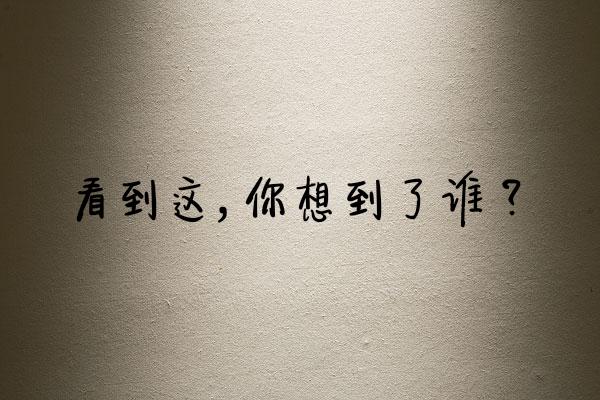 看到这,你想到了谁?